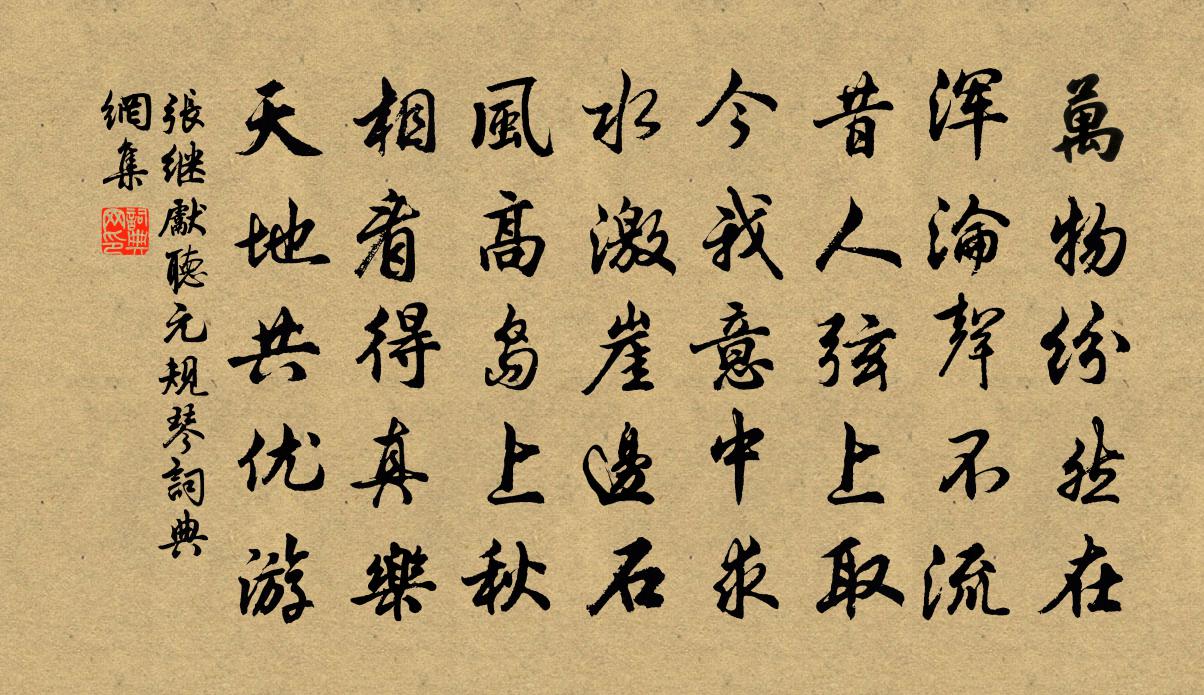 萬物纷然在
浑淪聲不流
昔人弦上取
今我意中求
水激崖邊石
風高島上秋
相看得真樂
天地共优游
張继獻聽元规琴詞典
網集
詞典网印